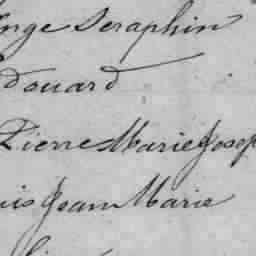 Ange Seraphin
Edouard
Pierre Marie Josep
uis Jean Marie